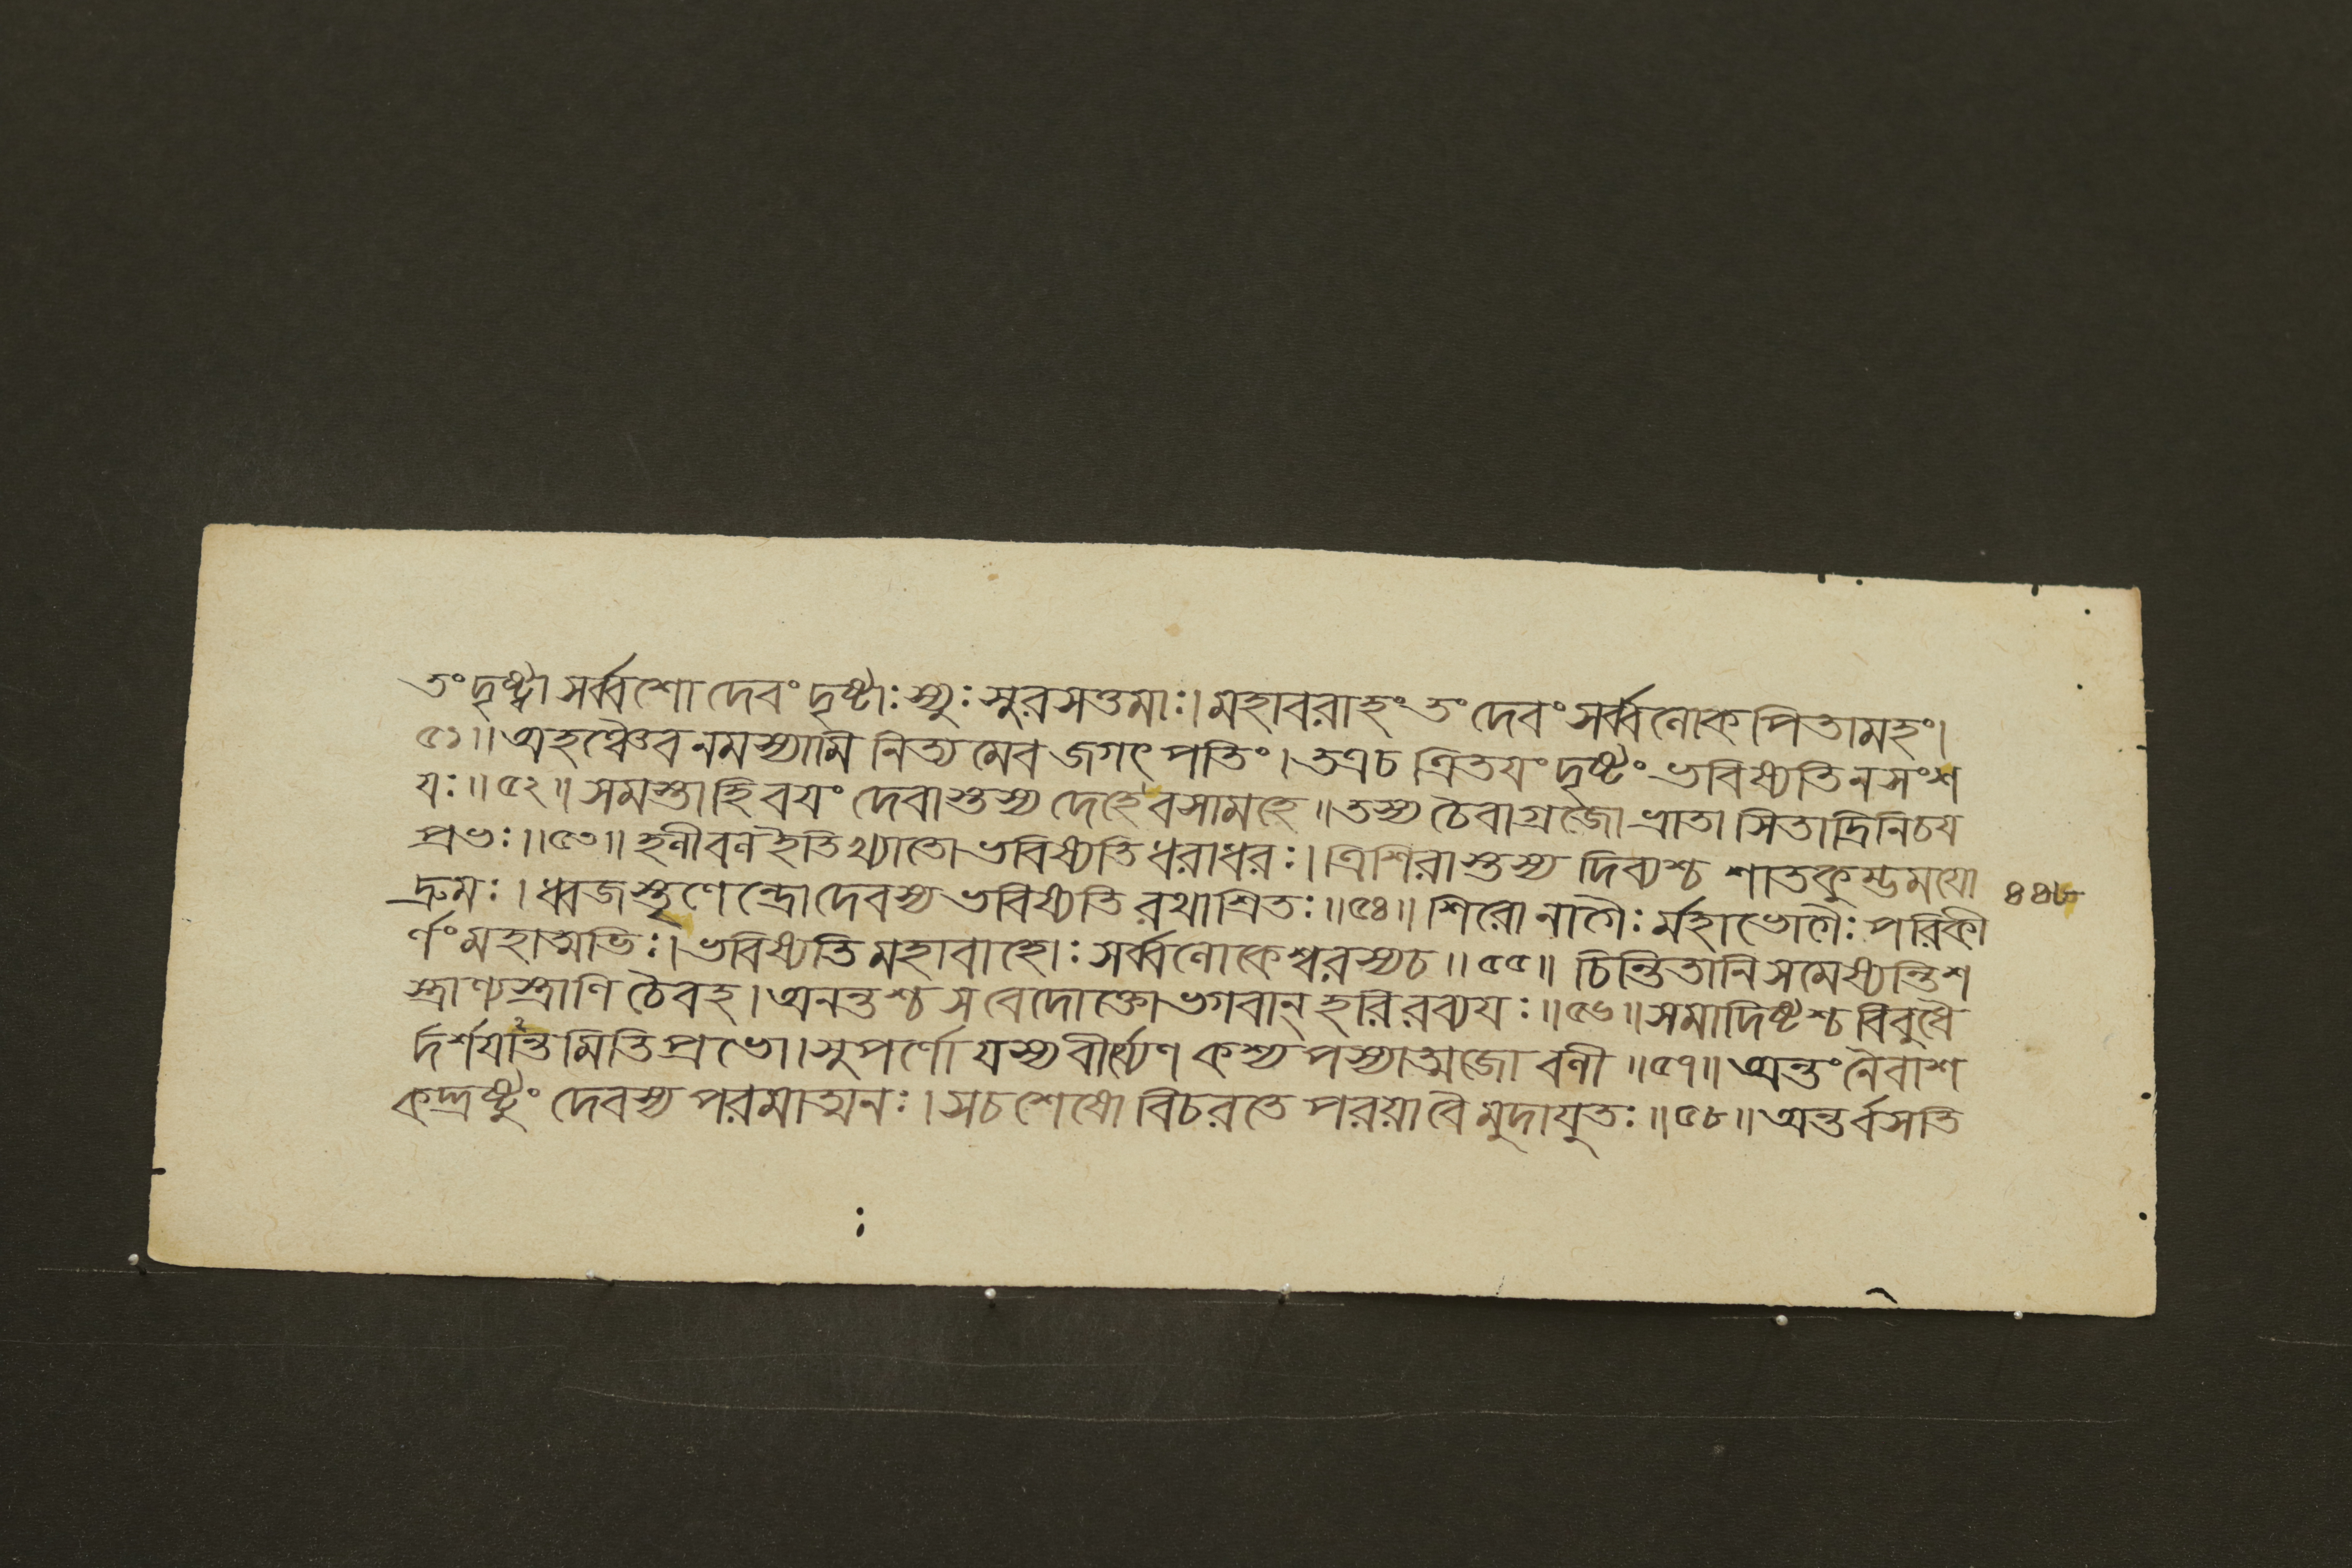 তং দৃষ্ট্বা সর্ব্বশো দেবং দৃষ্টাঃ স্যুঃ সুরসত্তমাঃ। মহাবরাহং তং দেবং সর্ব্বলোকপিতামহং।
৫১॥ অহঞ্চৈব নমস্যামি নিত্যমেব জগৎপতিং। তত্রচ ত্রিতযং দৃষ্টং ভবিষ্যতি ন সংশ
যঃ॥ ৫২॥ সমস্তা হি বযং দেবাস্তস্য দেহে বসামহে॥ তস্য চৈবাগ্রজো ভ্রাতা সিতাদ্রিনিচয
প্রভঃ॥ ৫৩॥ হলী বল ইতি খ্যাতো ভবিষ্যতি ধরাধরঃ। ত্রিশিরাস্তস্য দিব্যশ্চ শাতকুম্ভমযো
দ্রুমঃ। ধ্বজস্তৃণেন্দ্রো দেবস্য ভবিষ্যতি রথাশ্রিতঃ॥ ৫৪॥ শিরো নাগৈঃর্মহাভোগৈঃ পরিকী
র্ণং মহাত্মভিঃ। ভবিষ্যতি মহাবাহোঃ সর্ব্বলোকেশ্বরস্য চ॥ ৫৫॥ চিন্তিতানি সমেষ্যন্তি শ
স্ত্রাণ্যস্ত্রাণি চৈবহ। অনন্তশ্চ স বেদোক্তো ভগবান্ হরিরব্যযঃ॥ ৫৬॥ সমাদিষ্টশ্চ বিবুধৈ
র্দর্শযত্বমিতি প্রভো। সুপর্ণো যস্য বীর্য্যেণ কশ্যপস্যাত্মজো বলী॥ ৫৭॥ অন্তং নৈবাশ
কদ্দ্রষ্টুং দেবস্য পরমাত্মনঃ। স চ শেষো বিচরতে পরয়া বৈ মুদাযুতঃ॥ ৫৮॥ অন্তর্বসতি
৪৪৮